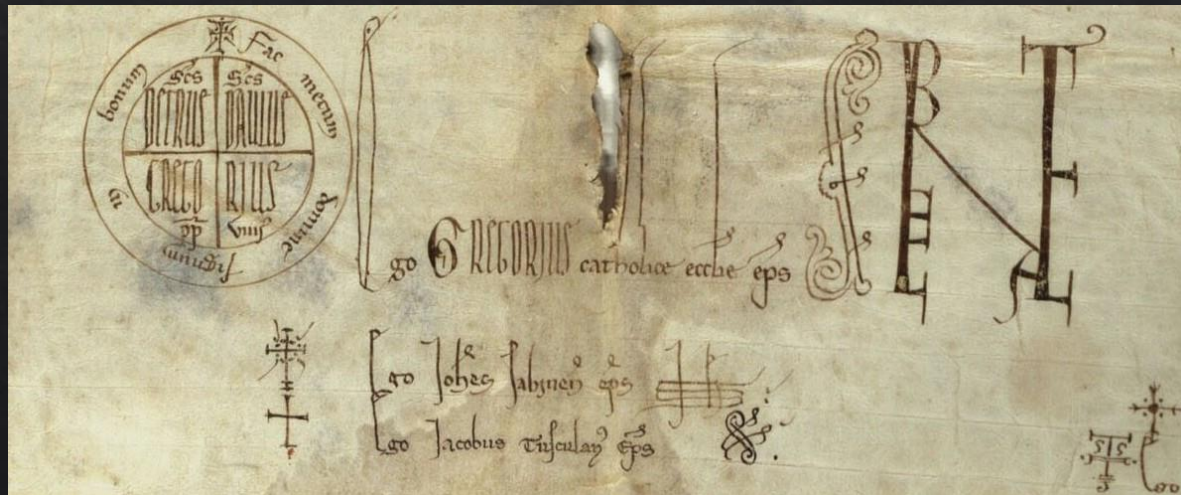 Fac mecum domine signum in bonum
Scs Scs
PETRUS PAULUS
GREGO RIUS
pp VIIII
Ego GREGORIUS catholice ecclie eps
Ego Johes Sabinen eps
Ego Jacobus Tusculan eps
go